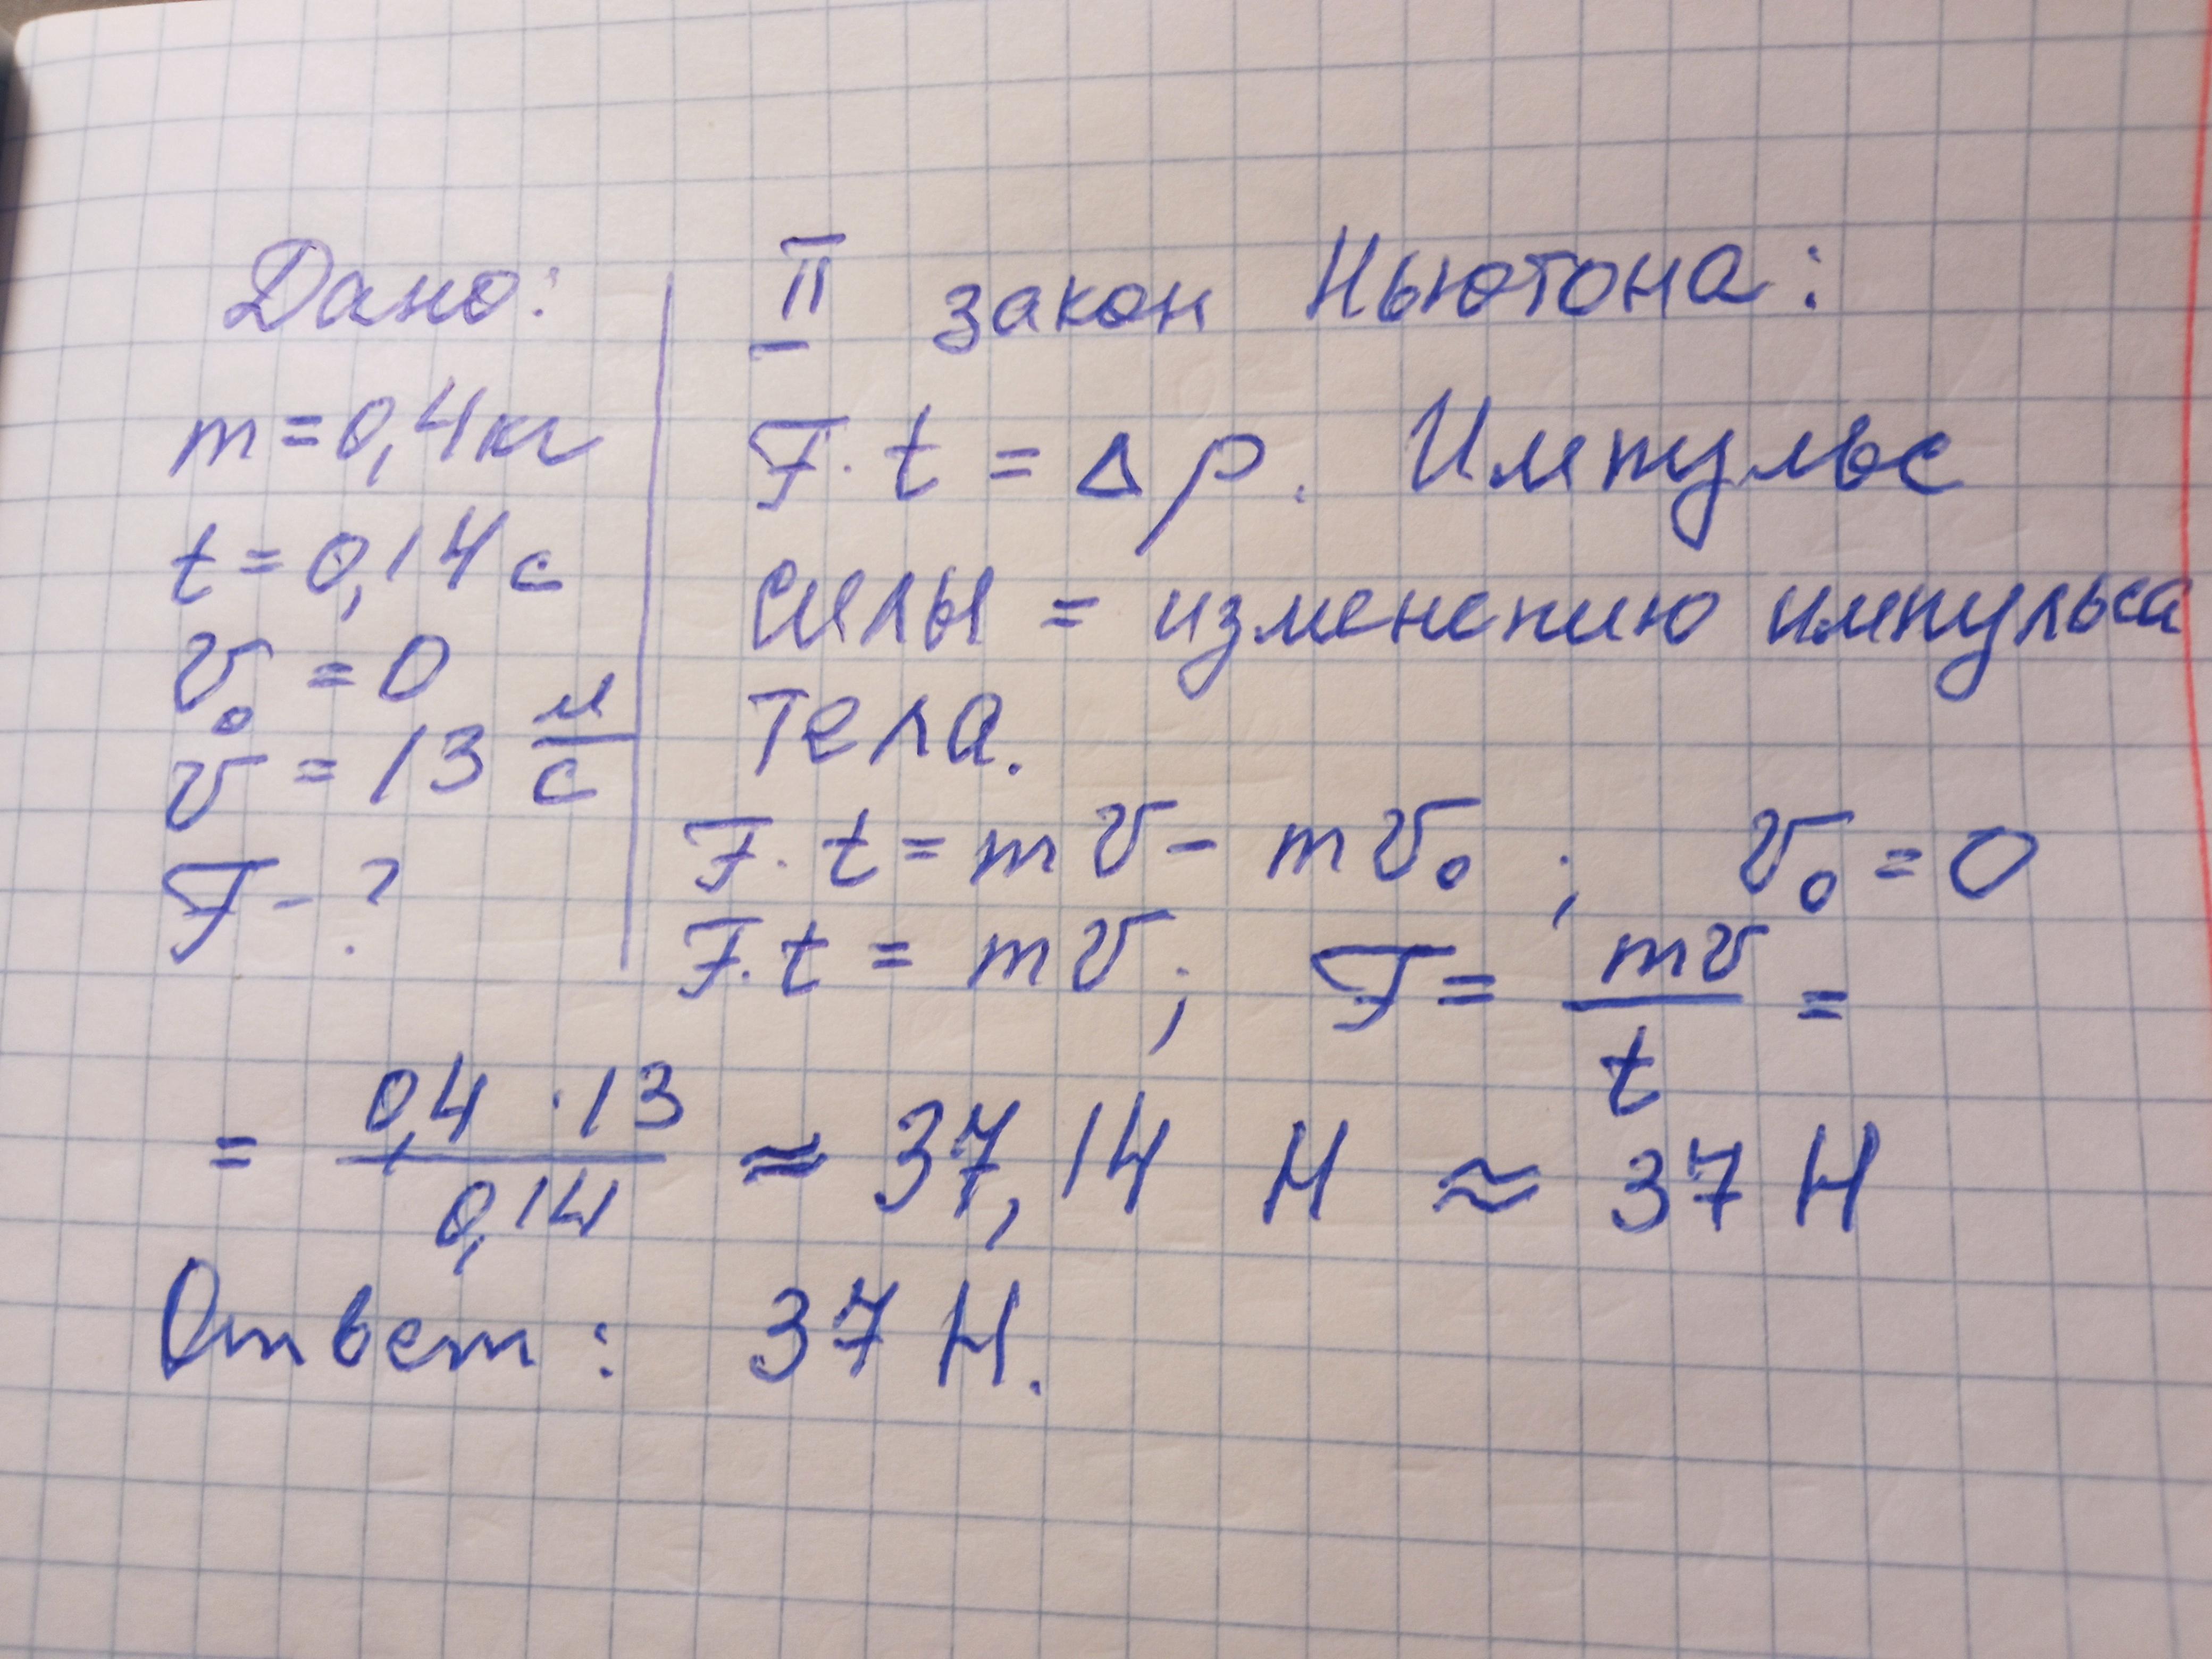 Дано:
m = 0,4 кг
t = 0,14 с
v₀ = 0
v = 13 м/с
F - ?
II закон Ньютона:
F · t = Δp. Импульс
силы = изменению импульса
тела.
F · t = mv - mv₀ ; v₀ = 0
F · t = mv ; F = mv/t =
= 0,4 · 13 / 0,14 ≈ 37,14 Н ≈ 37 Н
Ответ : 37 Н.